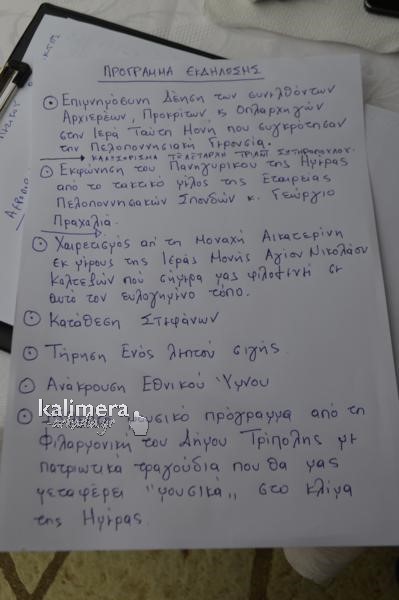 ΠΡΟΓΡΑΜΜΑ ΕΚΔΗΛΩΣΗΣ
Επιμνημόσυνη Δέηση των συνελθόντων
Αρχιερέων, Προκρίτων & Οπλαρχηγών
στην Ιερά Ταύτη Μονή που συγκρότησαν
την Πελοποννησιακή Γερουσία.
ΚΑΛΩΣΟΡΙΣΜΑ ΤΕΛΕΤΑΡΧΗ ΣΩΤΗΡΟΠΟΥΛΟΥ
Εκφώνηση του Πανηγυρικού της Ημέρας
από το τακτικό μέλος της Εταιρείας
Πελοποννησιακών Σπουδών κ. Γεώργιο
Πραχαλιά.
Χαιρετισμός από τη Μοναχή Αικατερίνη
εκ μέρους της Ιεράς Μονής Αγίου Νικολάου
Καλτεζών που σήμερα μας φιλοξενεί σε
αυτό τον ευλογημένο τόπο.
Κατάθεση Στεφάνων
Τήρηση Ενός λεπτού σιγής.
Ανάκρουση Εθνικού Ύμνου
kalimera
πρόγραμμα από τη
Φιλαρμονική του Δήμου Τρίπολης με
πατριωτικά τραγούδια που θα μας
μεταφέρει "μουσικά" στο κλίμα
της Ημέρας.